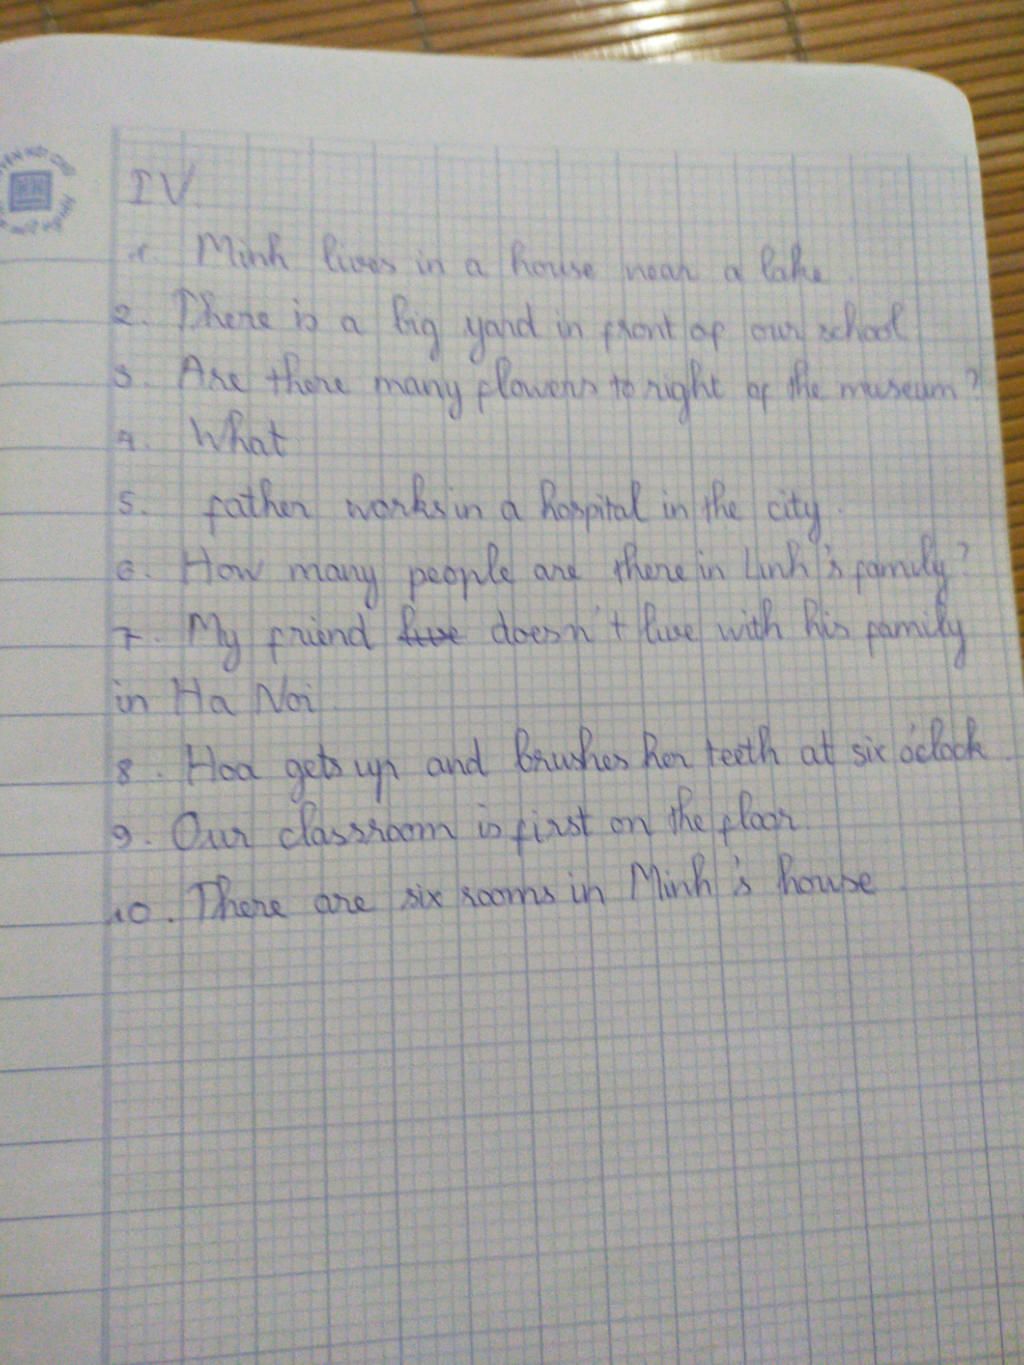 IV
1. Minh lives in a house near a lake.
2. There is a big yard in front of our school
3. Are there many flowers to right of the museum?
4. What
5. father works in a hospital in the city.
6. How many people are there in Linh's family?
7. My friend live doesn't live with his family
in Ha Noi
8. Hoa gets up and brushes her teeth at six o'clock.
9. Our classroom is first on the floor.
10. There are six rooms in Minh's house